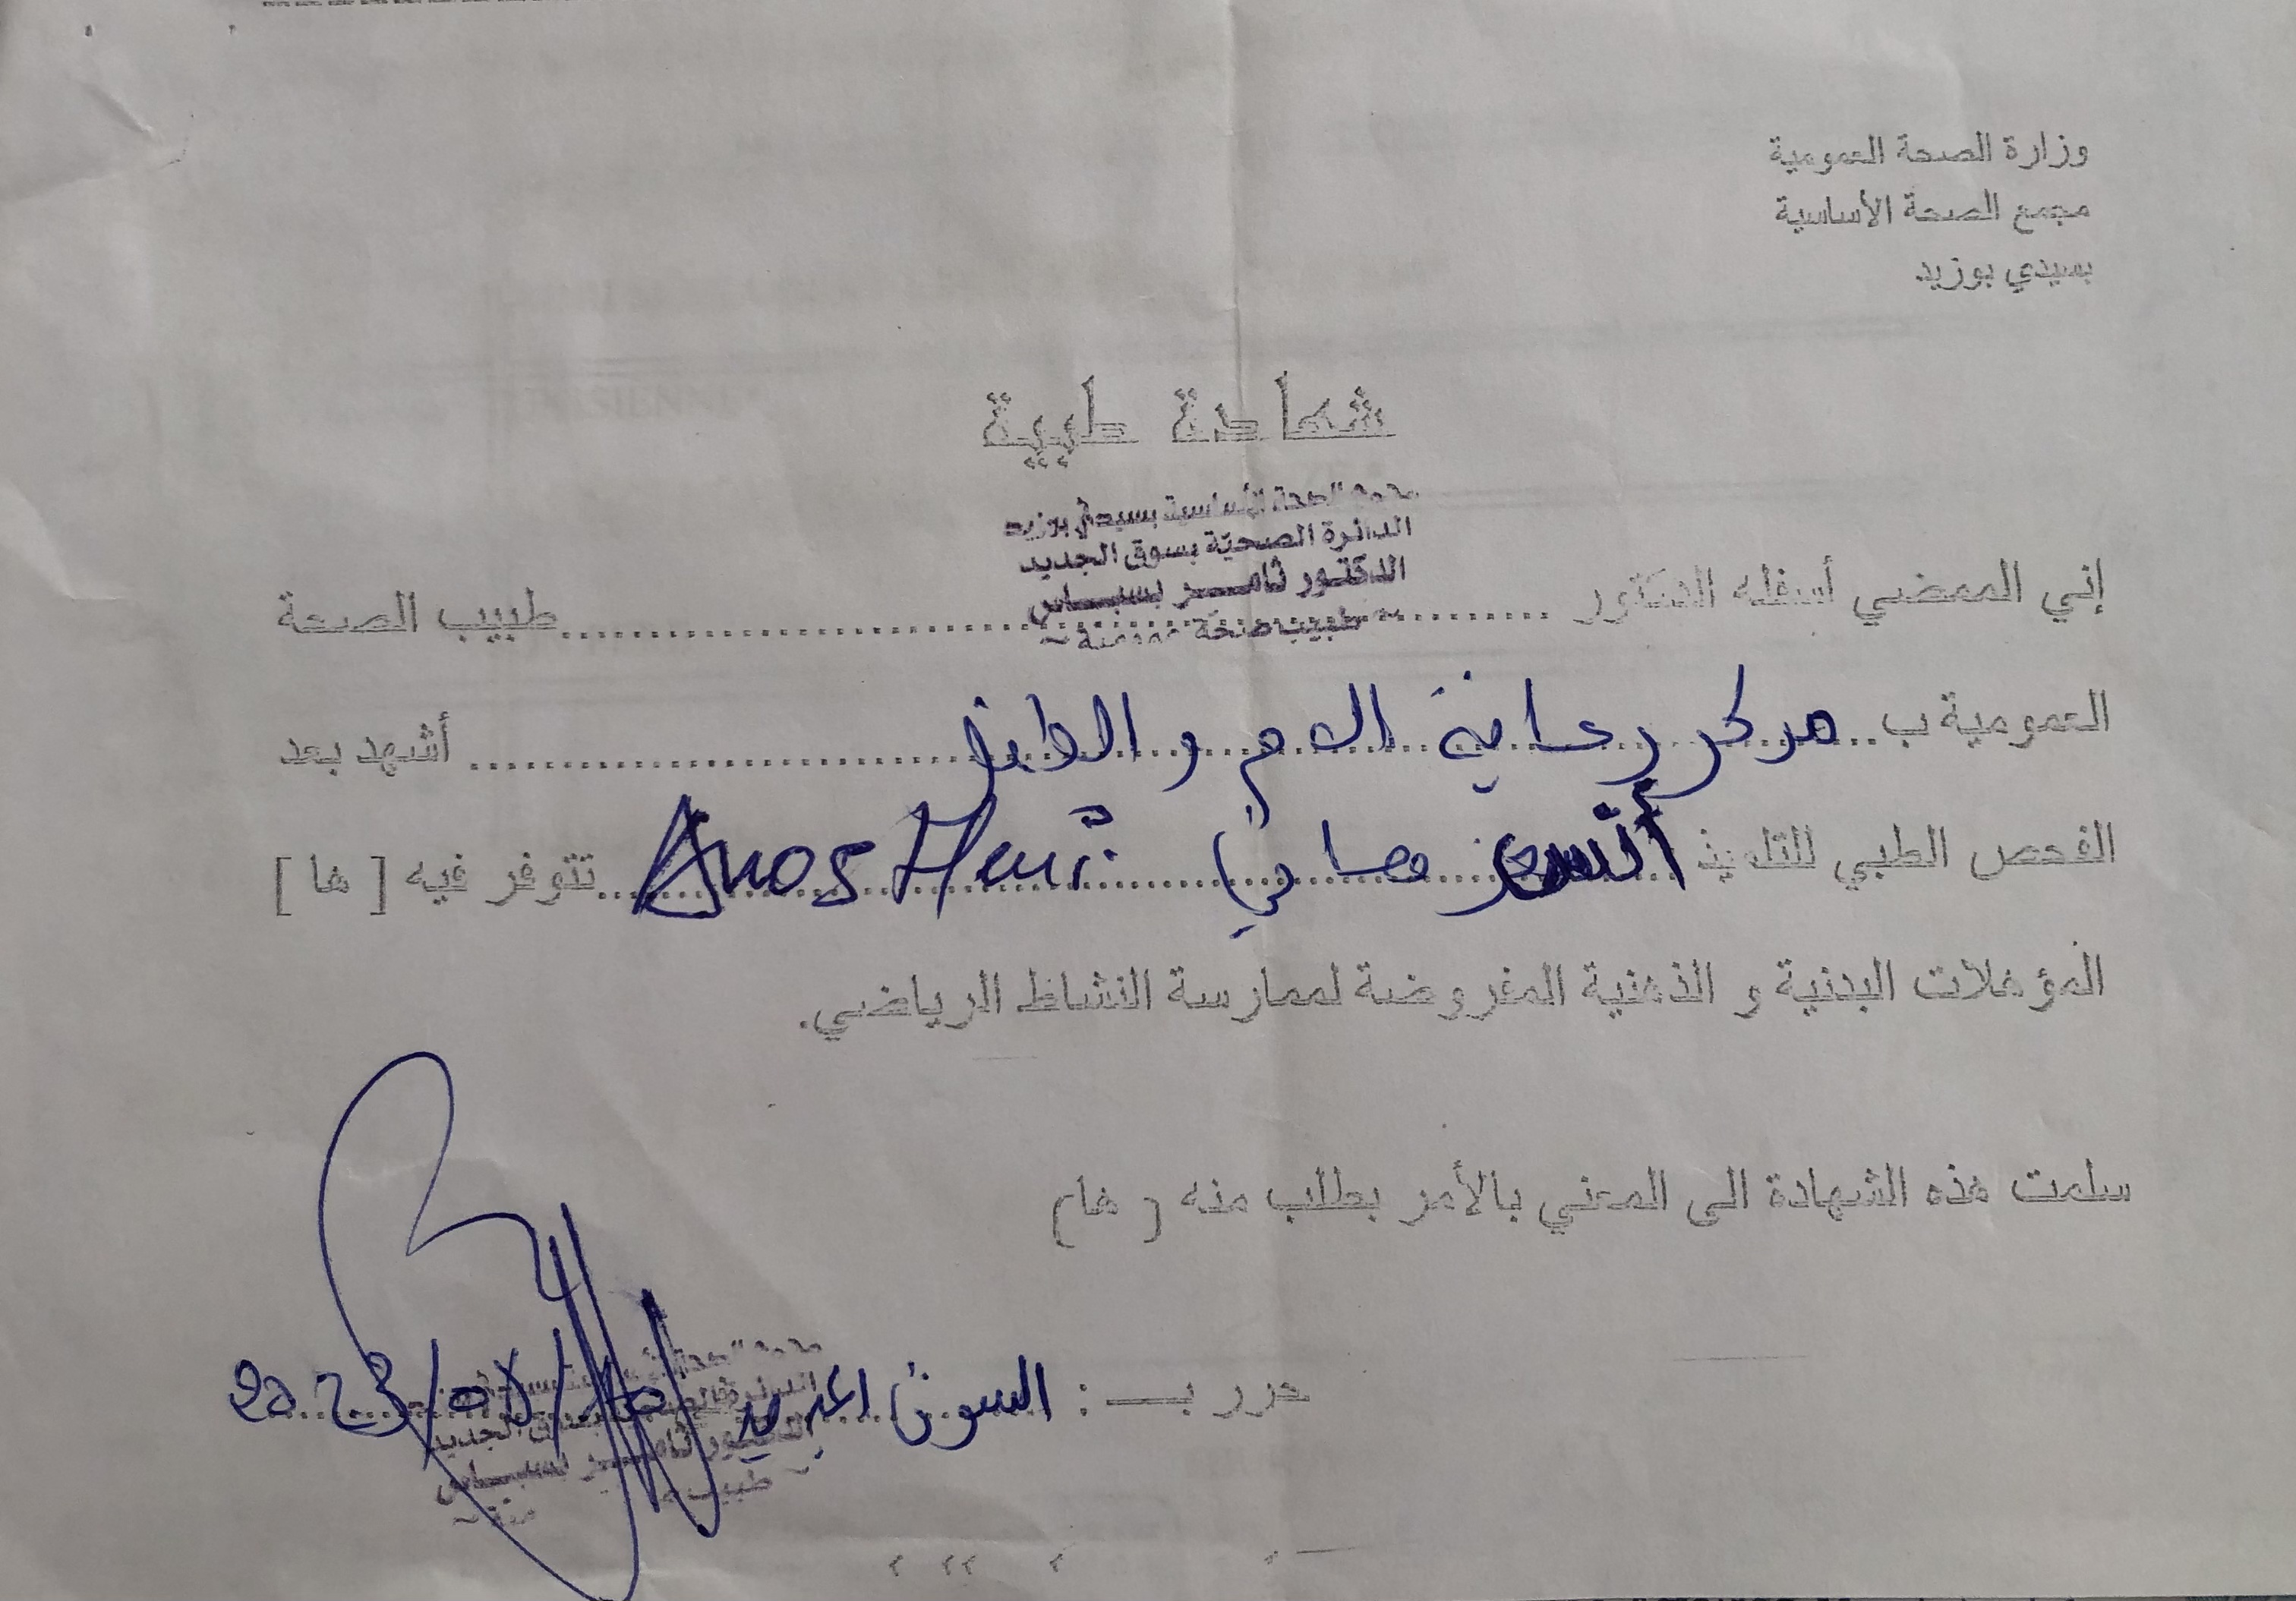 وزارة الصحة العمومية
مجمع الصحة الأساسية
بسيدي بوزيد
شهادة طبية
مجمع الصحة الأساسية بسيدي بوزيد
الدائرة الصحيّة بسوق الجديد
الدكتور ثامر بسباس
~ طبيب صحّة عمومية ~
إني الممضي أسفله الدكتور ........ طبيب الصحة
العمومية ب.. مركز رعاية الام و الطفل ........ أشهد بعد
الفحص الطبي للتلميذ أنس ........ تتوفر فيه [ ها ]
المؤهلات البدنية و الذهنية المفروضة لممارسة النشاط الرياضي.
سلمت هذه الشهادة الى المعني بالأمر بطلب منه ( ها)
حرر بـ : السوق الجديد 2023/08/10
الدكتور ثامر بسباس
~ طبيب